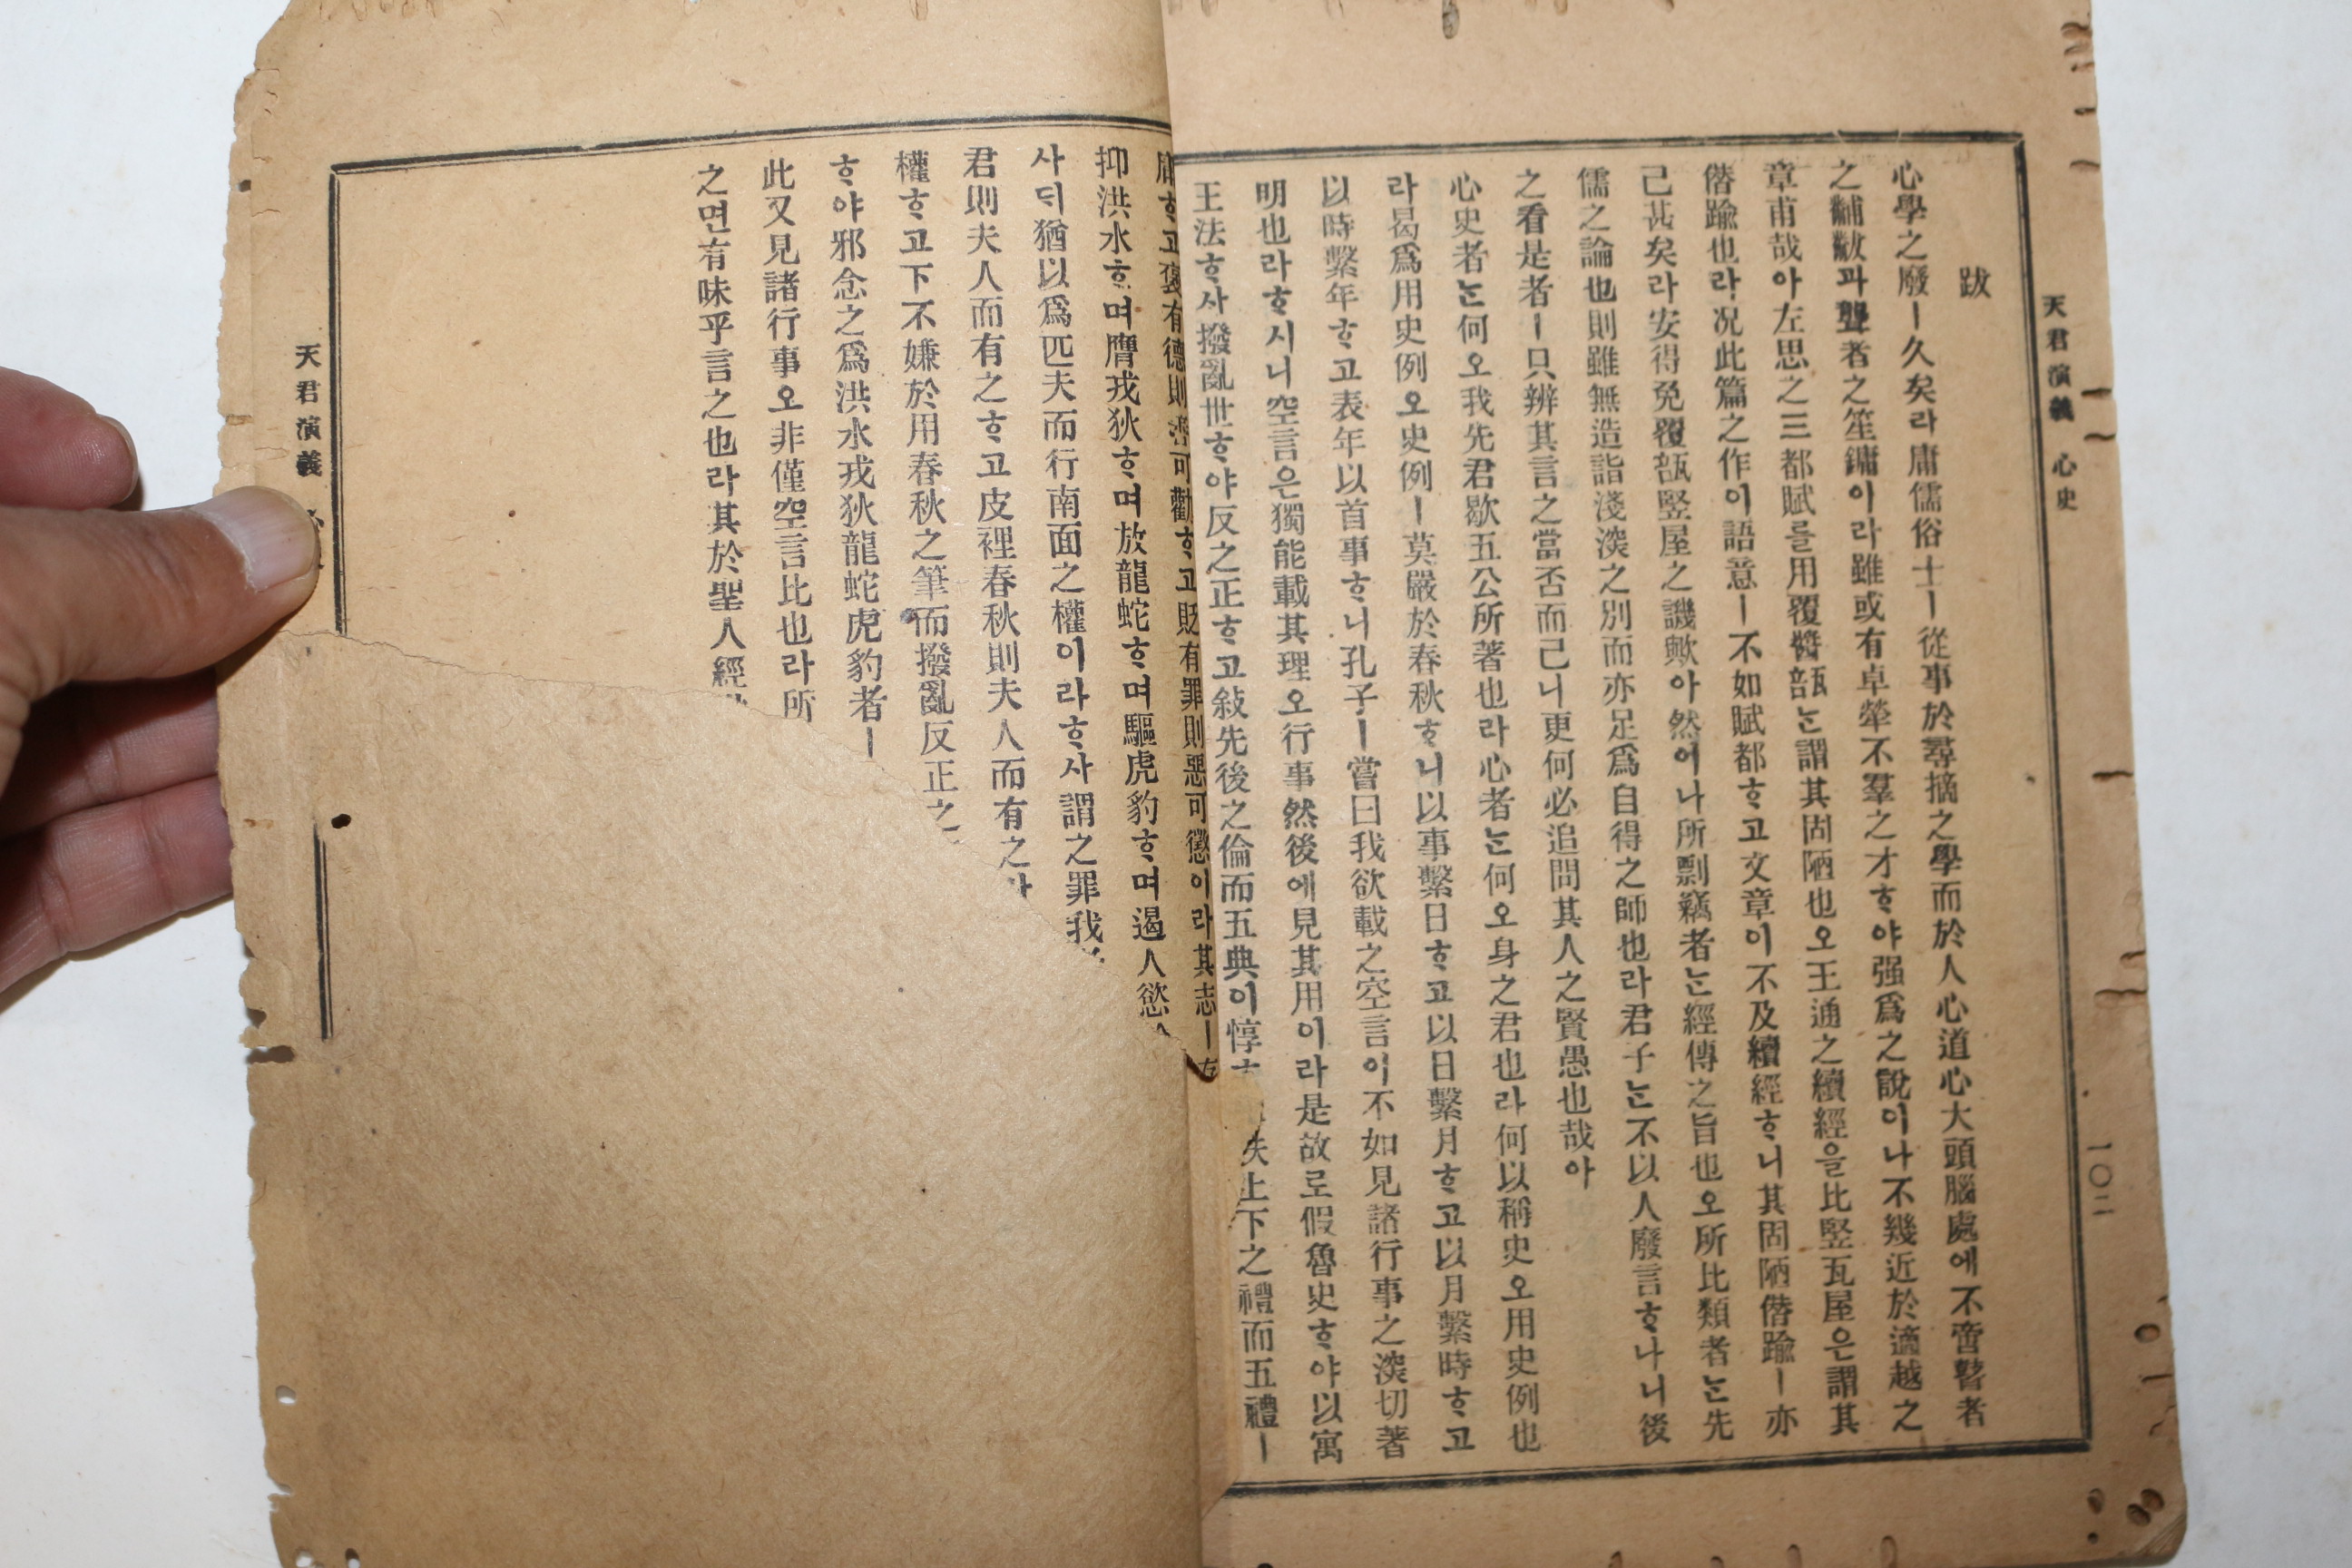 天君演義 心史
一〇二
跋
心學之廢ㅣ久矣라庸儒俗士ㅣ從事於尋摘之學而於人心道心大頭腦處에不啻瞽者
之黼黻과聾者之笙鏞이라雖或有卓犖不羣之才ᄒᆞ야强爲之說이나不幾近於適越之
章甫哉아左思之三都賦를用覆醬瓿ᄂᆞᆫ謂其固陋也오王通之續經을比竪瓦屋은謂其
僭踰也라况此篇之作이語意ㅣ不如賦都ᄒᆞ고文章이不及續經ᄒᆞ니其固陋僭踰ㅣ亦
已甚矣라安得免覆瓿竪屋之譏歟아然이나所剽竊者ᄂᆞᆫ經傳之旨也오所比類者ᄂᆞᆫ先
儒之論也則雖無造詣淺深之別而亦足爲自得之師也라君子ᄂᆞᆫ不以人廢言ᄒᆞ나니後
之看是者ㅣ只辨其言之當否而已니更何必追問其人之賢愚也哉아
心史者ᄂᆞᆫ何오我先君歇五公所著也라心者ᄂᆞᆫ何오身之君也라何以稱史오用史例也
라曷爲用史例오史例ㅣ莫嚴於春秋ᄒᆞ니以事繫日ᄒᆞ고以日繫月ᄒᆞ고以月繫時ᄒᆞ고
以時繫年ᄒᆞ고表年以首事ᄒᆞ니孔子ㅣ嘗曰我欲載之空言이不如見諸行事之深切著
明也라ᄒᆞ시니空言은獨能載其理오行事然後에見其用이라是故로假魯史ᄒᆞ야以寓
王法ᄒᆞ사撥亂世ᄒᆞ야反之正ᄒᆞ고敍先後之倫而五典이惇 秩上下之禮而五禮ㅣ
庸ᄒᆞ고褒有德則善可勸ᄒᆞ고貶有罪則惡可懲이라其志ㅣ
抑洪水ᄒᆞ며膺戎狄ᄒᆞ며放龍蛇ᄒᆞ며驅虎豹ᄒᆞ며遏人慾
사ᄃᆡ猶以爲匹夫而行南面之權이라ᄒᆞ사謂之罪我
君則夫人而有之ᄒᆞ고皮裡春秋則夫人而有之
權ᄒᆞ고下不嫌於用春秋之筆而撥亂反正之
ᄒᆞ야邪念之爲洪水戎狄龍蛇虎豹者ㅣ
此又見諸行事오非僅空言比也라所
之면有味乎言之也라其於聖人經
天君演義